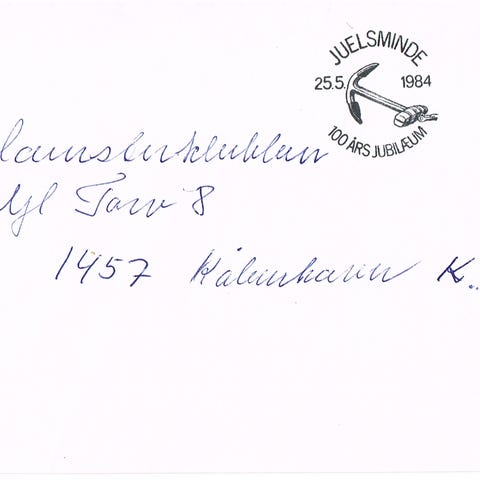 JUELSMINDE
25.5. 1984
100 ÅRS JUBILÆUM
Gl Torv 8
1457 København K.